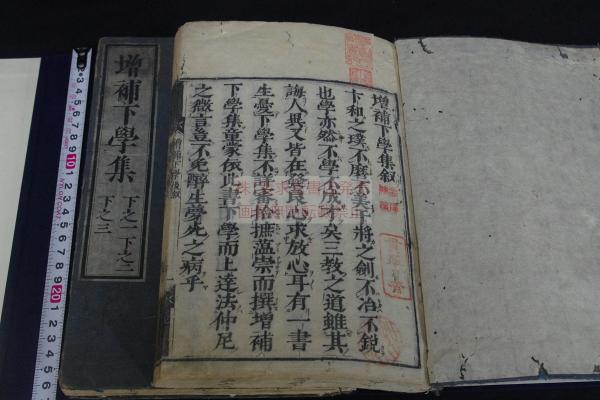 增補下學集敘
卞和之璞不磨不美干將之劍不冶不銳
也學亦然不學不成才矣三教之道雖其
誨人異又皆在發良心求放心耳有一書
生憂下學集不詳審拾摭蘊崇而撰增補
下學集童蒙依此書下學而上達法仲尼
之微言豈不免醉生夢死之病乎
增補下學集
下之一下之二
下之三